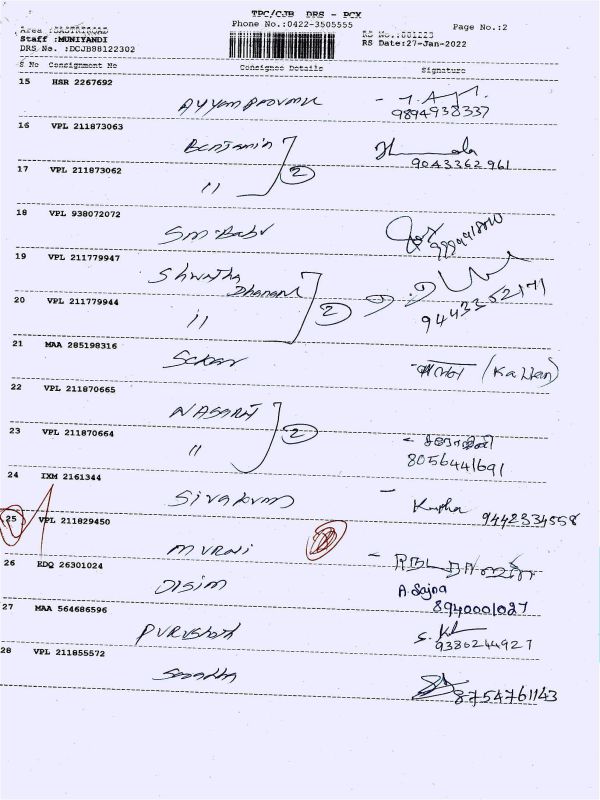 TPC/CJB DRS - PCX
Phone No.:0422-3505555
Page No.:2
Area :SASTRIROAD
Staff :MUNIYANDI
DRS No. :DCJB88122302
RS No.:881223
RS Date:27-Jan-2022
S No Consignment No Consignee Details Signature
15 HSR 2267692
9894938337
16 VPL 211873063 Benjamin
9043362961
17 VPL 211873062 〃 2
18 VPL 938072072 SM.Babu
19 VPL 211779947 Shwatha
Dhanand
9443352171
20 VPL 211779944 〃 2
21 MAA 285198316 (Kallan)
22 VPL 211870665
23 VPL 211870664 〃 2
8056441691
24 IXM 2161344 Sivakumar
9442334558
25 VPL 211829450 Murali
26 EDQ 26301024 A. Sajna
8940001027
27 MAA 564686596 Purushoth
9386244927
28 VPL 211855572
8754761143